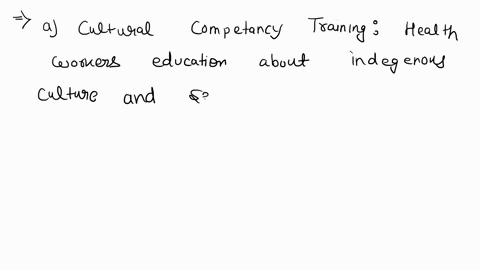 ⇒ a) Cultural Competancy Training: Health
workers education about indegenous
culture and